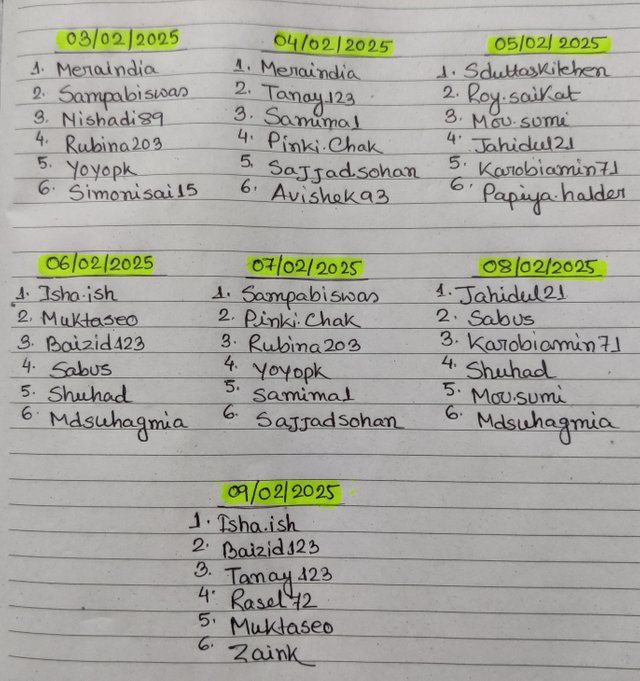 03/02/2025
1. Meraindia
2. Sampabiswas
3. Nishadi89
4. Rubina203
5. Yoyopk
6. Simonisai15
04/02/2025
1. Meraindia
2. Tanay123
3. Samimal
4. Pinki.Chak
5. Sajjadsohan
6. Avishek93
05/02/2025
1. Sduttaskitchen
2. Roy.saikat
3. Mou.sumi
4. Jahidul21
5. Karobiamin71
6. Papiya.halder
06/02/2025
1. Isha.ish
2. Muktaseo
3. Baizid123
4. Sabus
5. Shuhad
6. Mdsuhagmia
07/02/2025
1. Sampabiswas
2. Pinki.Chak
3. Rubina203
4. Yoyopk
5. Samimal
6. Sajjadsohan
08/02/2025
1. Jahidul21
2. Sabus
3. Karobiamin71
4. Shuhad
5. Mou.sumi
6. Mdsuhagmia
09/02/2025
1. Isha.ish
2. Baizid123
3. Tanay123
4. Rasel72
5. Muktaseo
6. Zaink